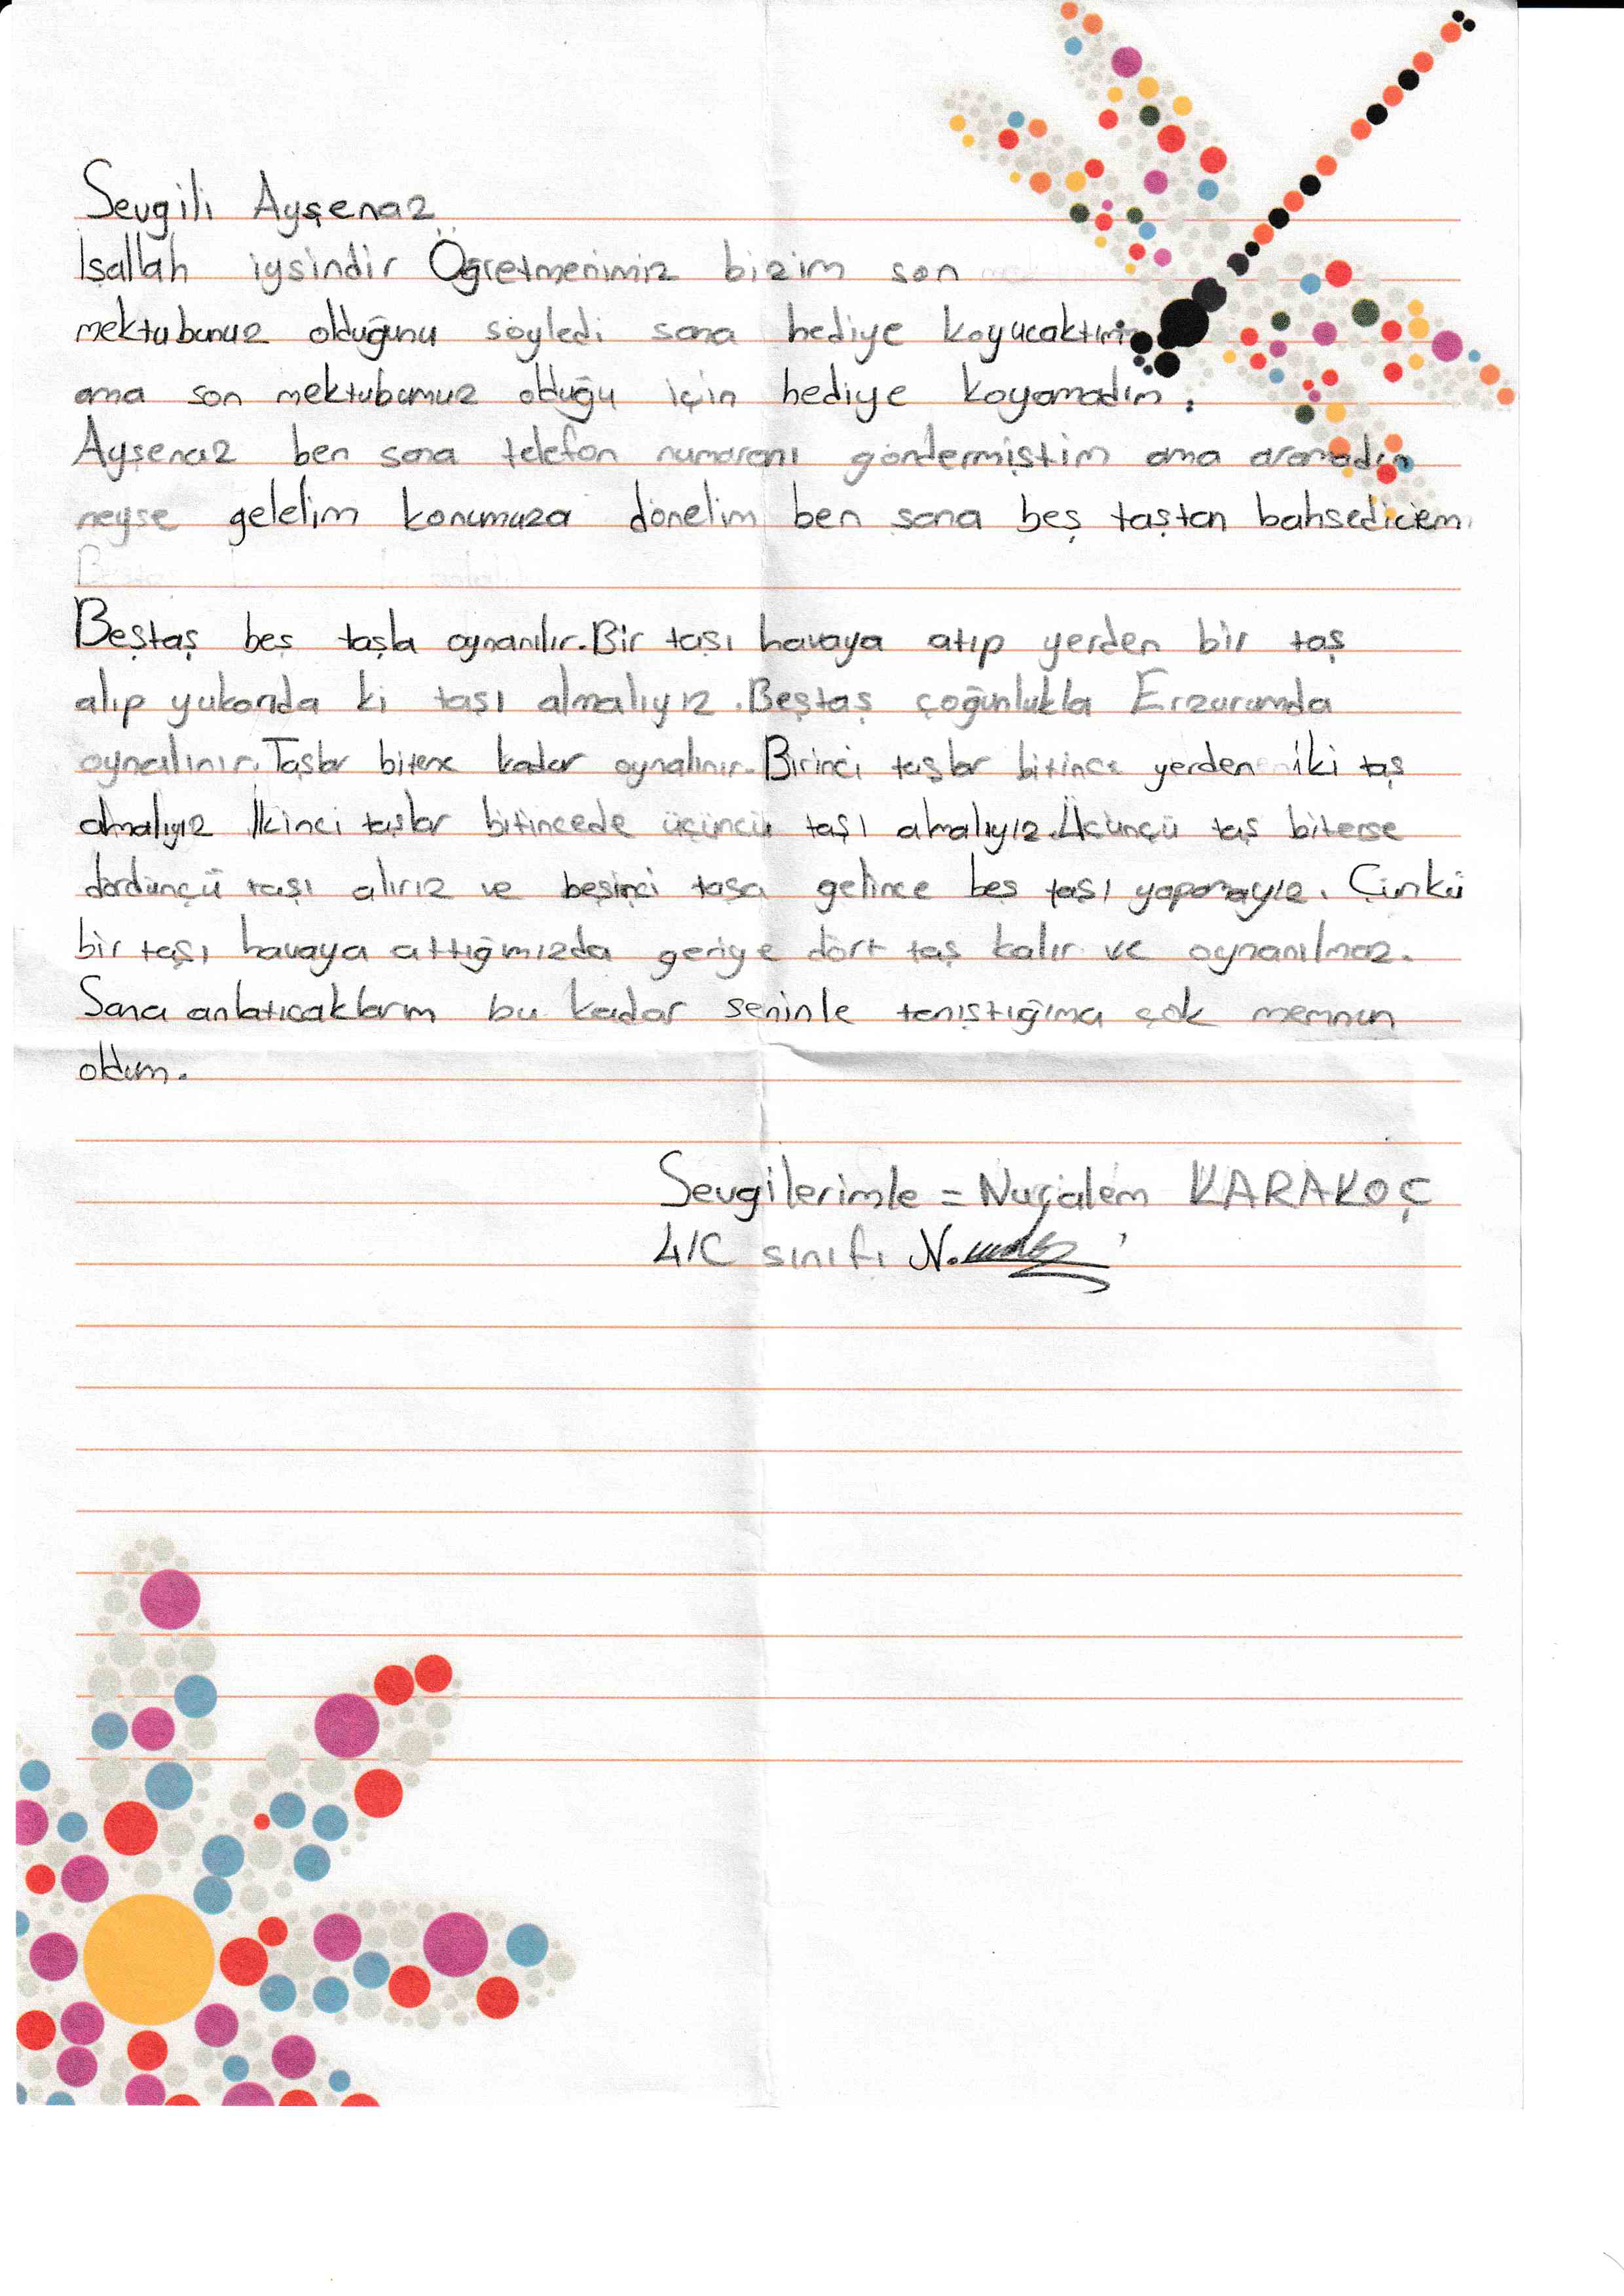 Sevgili Ayşenaz
İşallah iysindir Öğretmenimiz bizim son
mektubunuz olduğunu söyledi sana hediye koyucaktım
ama son mektubumuz olduğu için hediye koyamadım.
Ayşenaz ben sana telefon numaranı göndermiştim ama aramadın
neyse gelelim konumuza dönelim ben sana beş taştan bahsedicem.
Beştaş beş taşla oynanılır. Bir taşı havaya atıp yerden bir taş
alıp yukarıda ki taşı almalıyız. Beştaş çoğunlukla Erzurumda
oynalınır. Taşlar bitene kadar oynalınır. Birinci taşlar bitince yerden iki taş
almalıyız İkinci taşlar bitincede üçüncü taşı almalıyız. Üçünçü taş biterse
dördünçü taşı alırız ve beşinci taşa gelince beş taşı yapamayız. Çünkü
bir taşı havaya attığmızda geriye dört taş kalır ve oynanılmaz.
Sana anlatıcaklarım bu kadar seninle tanıştığıma çok memnun
oldum.
Sevgilerimle = Nurçalem KARAKOÇ
4/C sınıfı